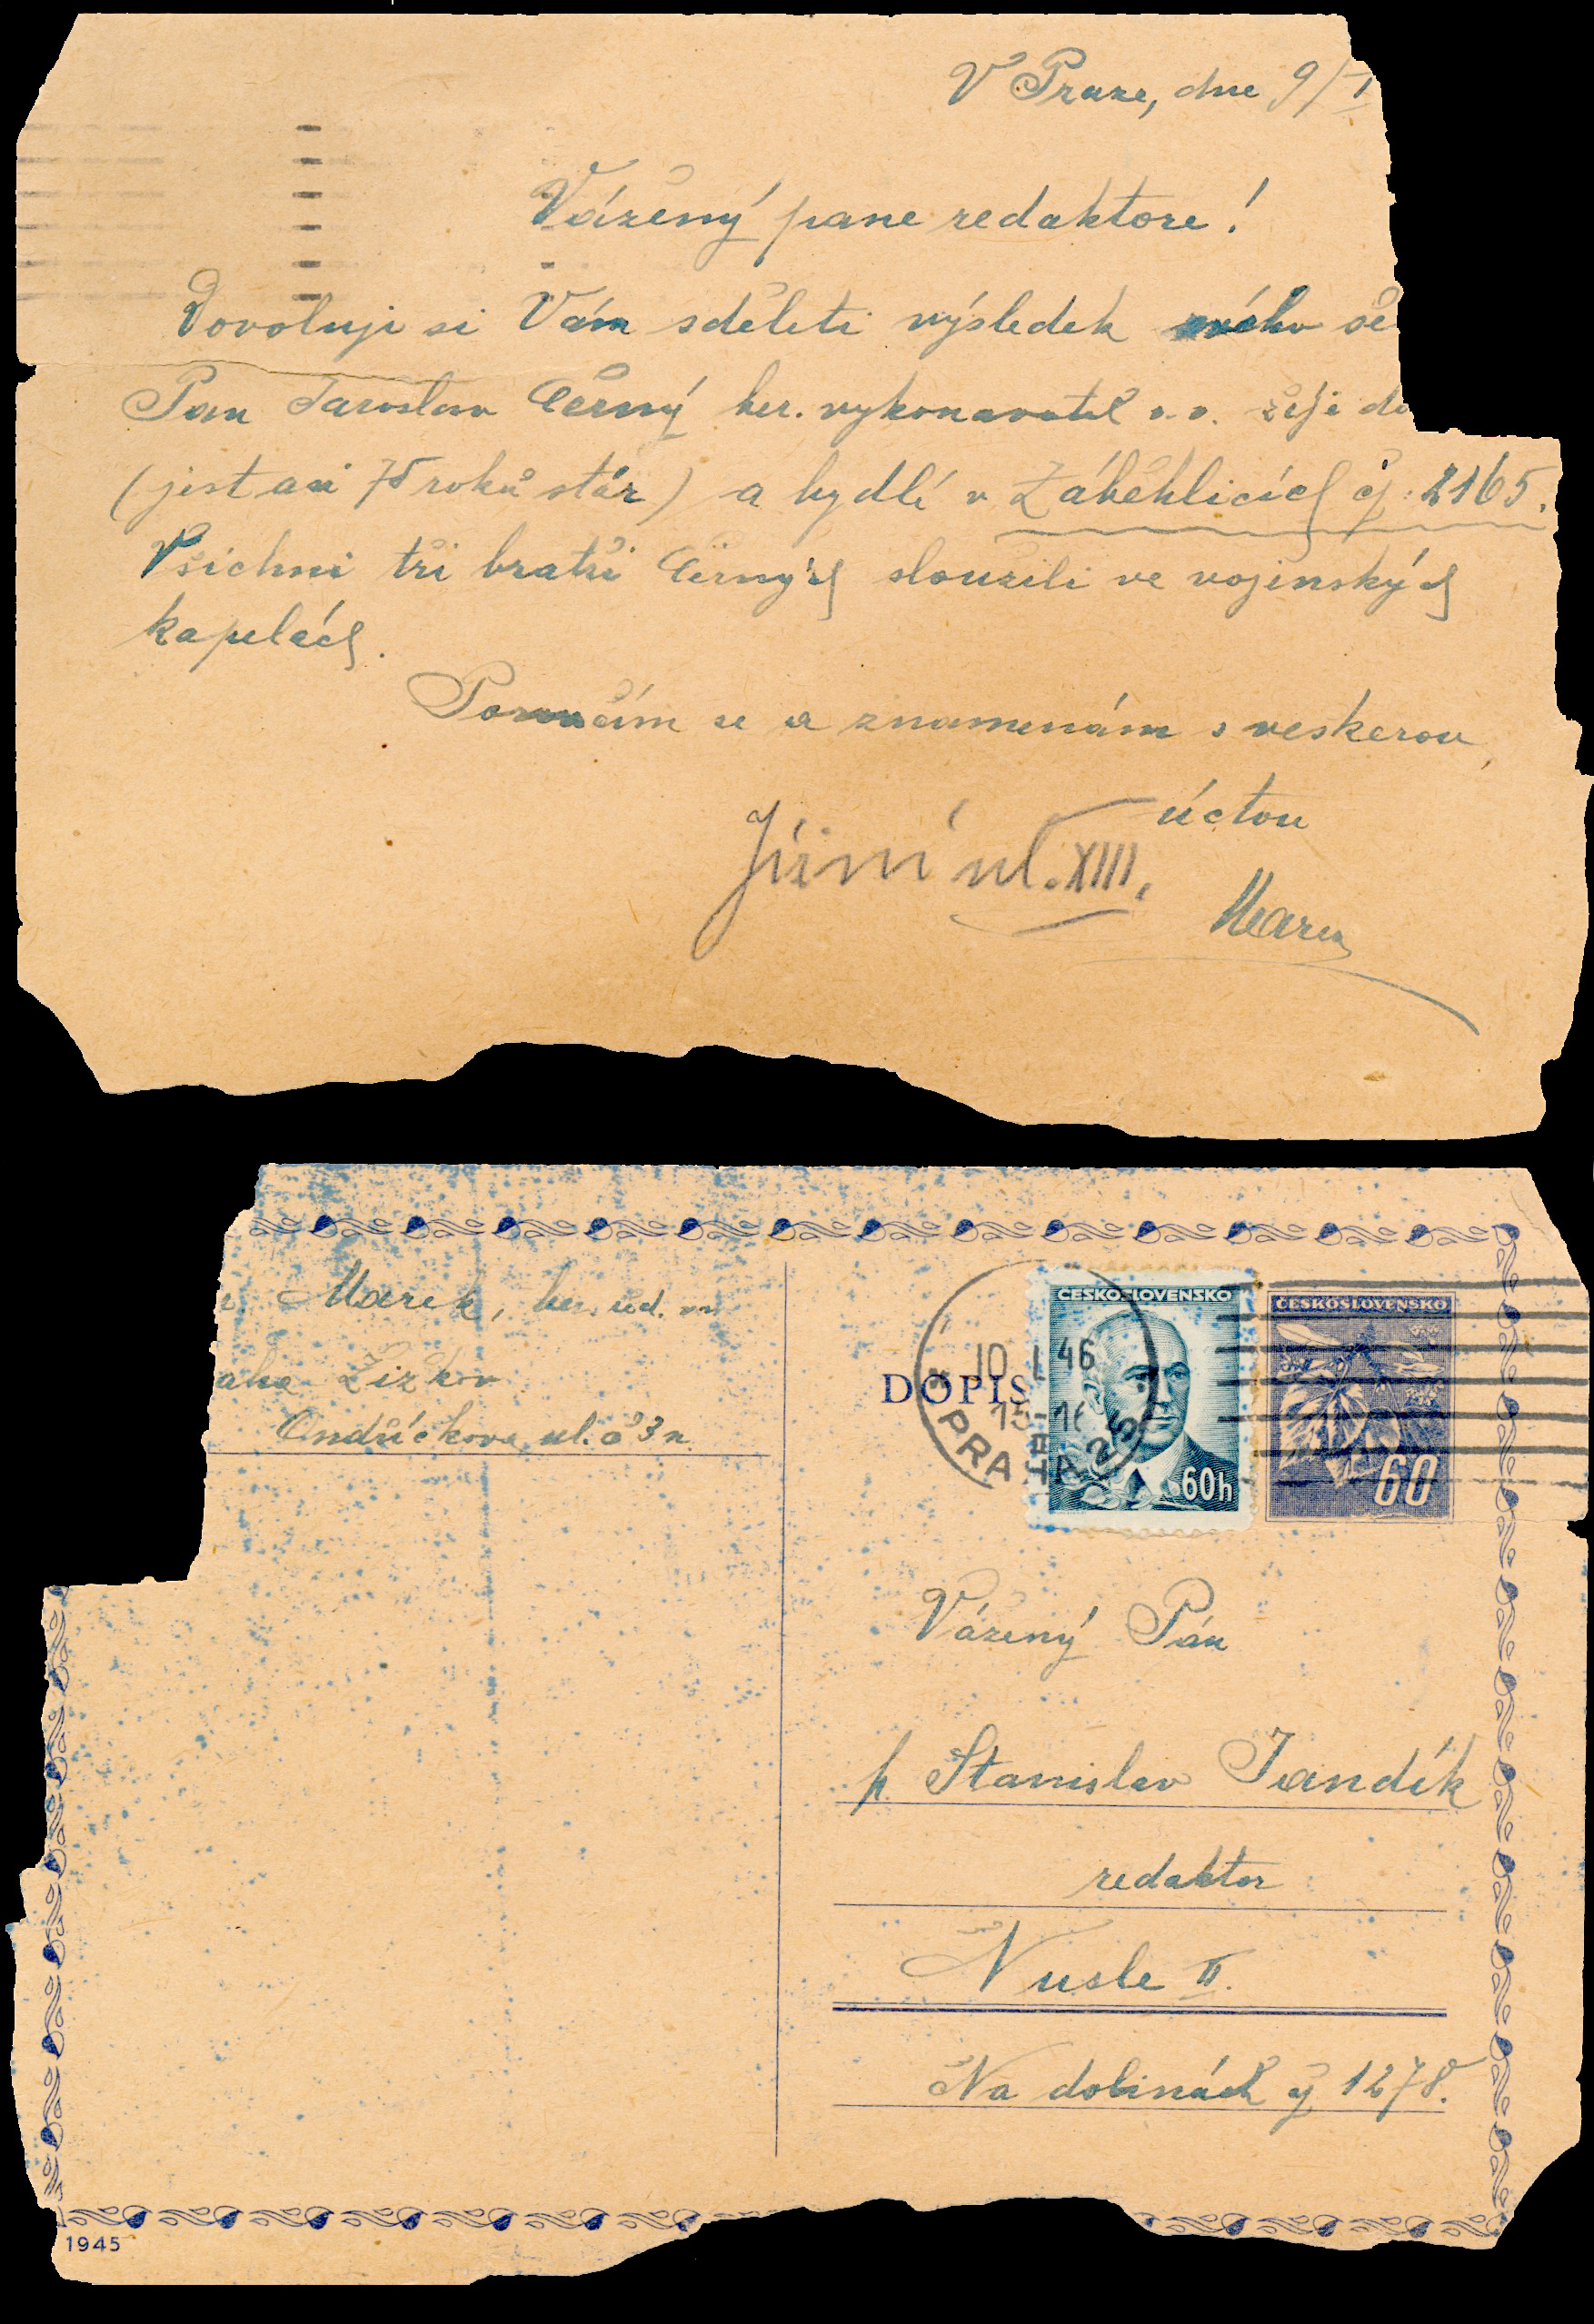 V Praze, dne 9/I
Vážený pane redaktore!
Dovoluji si Vám sděleti výsledek svého še
Pan Jaroslav Černý ber. vykonavatel v.v. žije do
(jest asi 75 roků stár) a bydlí v Záběhlicích čj. 2165.
Všichni tři bratři Černých sloužili ve vojenských
kapelách.
Poroučím se a znamenám s veškerou
úctou
Jižní ul. XIII.
Marek
Marek, ber. úd. vv
aha Žižkov
Ondříčkova ul. č 3n
DOPIS
10 I 46
15-16
PRAHA 25
ČESKOSLOVENSKO
60h
ČESKOSLOVENSKO
60
Vážený Pán
p. Stanislav Jandík
redaktor
Nusle II.
Na dolinách čj 1278.
1945